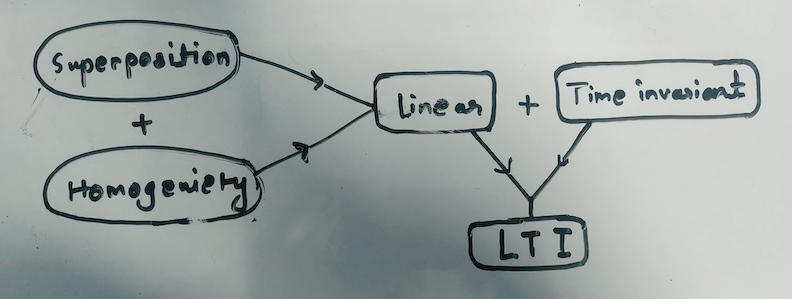 Superposition
+
Homogeniety
Linear + Time invariant
LTI